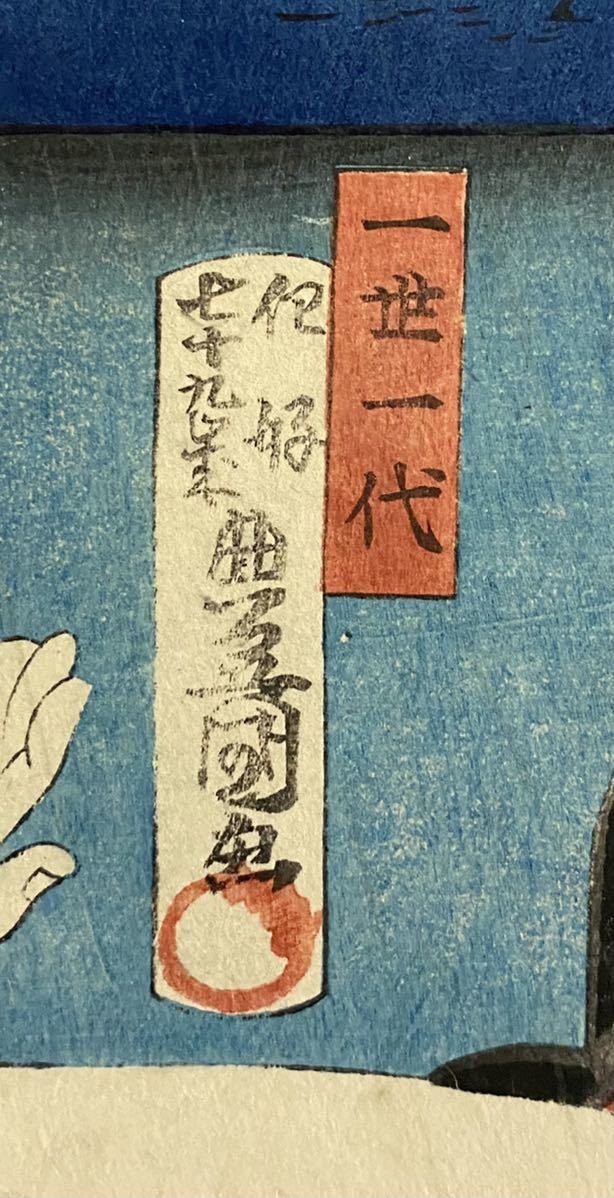 一世一代
任好
七十九歳
豊国画